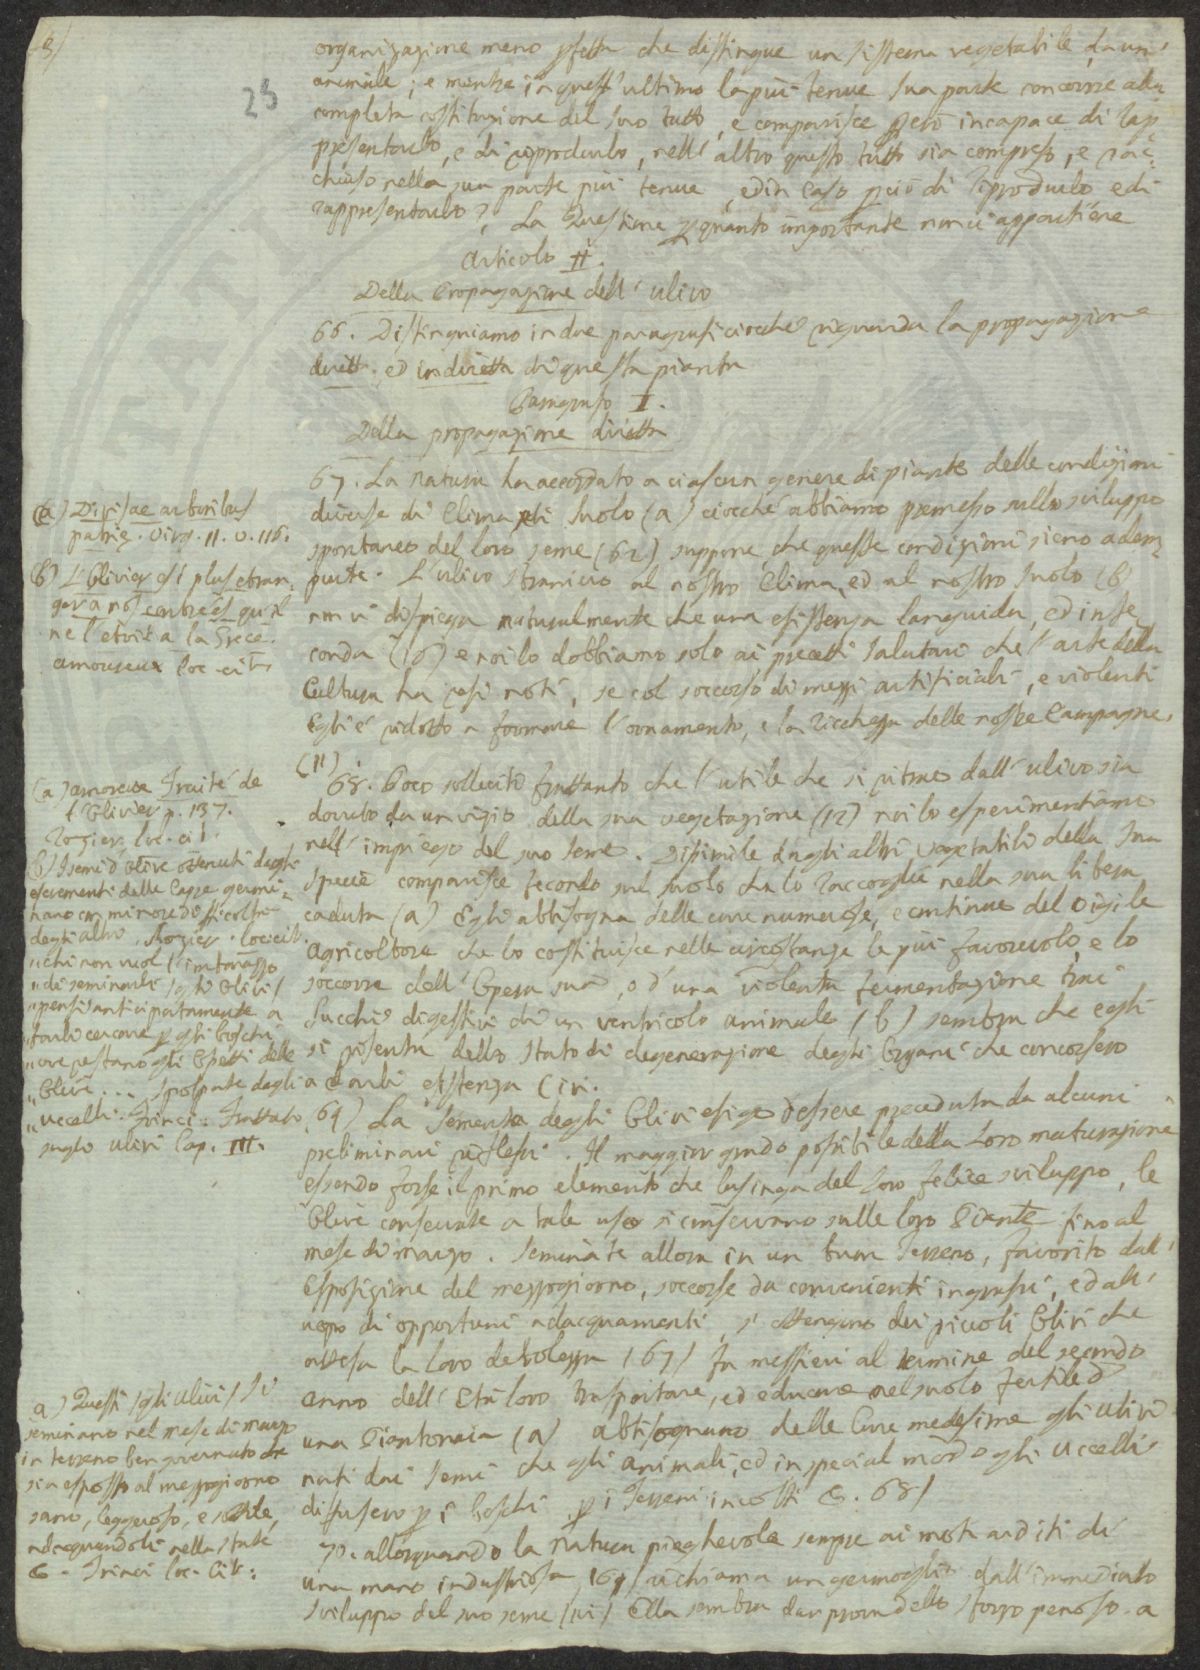 3)
25
organizazione meno pfetta che distingue un sistema vegetabile, da un'
animale; e mentre in quest'ultimo la più tenue sua parte concorre alla
completa costituzione del suo tutto, e comparisce però incapace di rap=
presentarlo, e di riprodurlo, nell'altro questo tutto sia compreso, e rac=
chiuso nella sua parte più tenue, ed in caso pciò di riprodurlo e di
rappresentarlo? La Questione p quanto importante non ci appartiene
Articolo II.
Della Propagazione dell'ulivo
66. Distinguiamo in due paragrafi ciocché riguarda la propagazione
diretta, ed indiretta di questa pianta
Paragrafo I.
Della propagazione diretta
67. La natura ha accordato a ciascun genere di piante delle condizioni
diverse di Clima, e di Suolo (a) ciocché abbiamo premesso sullo sviluppo
spontaneo del loro seme (62) suppone che queste condizioni sieno adem=
piute. L'ulivo straniero al nostro Clima, ed al nostro suolo (b)
non vi dispiega naturalmente che una esistenza languida, ed infe
conda (10) e noi lo dobbiamo solo ai precetti salutari che l'arte della
Cultura ha resi noti, se col soccorso di mezzi artificiali, e violenti
Egli è ridotto a formare l'ornamento, e la ricchezza delle nostre Campagne.
(11)
68. Poco solleciti frattanto che l'utile che si ritrae dall'ulivo sia
dovuto da un vizio della sua vegetazione (12) noi lo esperimentiamo
nell'impiego del suo seme. Dissimile dagli altri vegetabili della sua
specie comparisce fecondo sul suolo che lo raccoglie nella sua libera
caduta (a) Egli abbisogna delle cure numerose, e continue del vigile
Agricoltore che lo costituisce nelle circostanze le più favorevoli, e lo
soccorre dell'Opera sua, o d'una violenta fermentazione trai
Succhi digestivi di un ventricolo animale (b) sembra che egli
si risenta dello stato di degenerazione degli Organi che concorsero
a darli esistenza (iv.
69) La Sementa degli Olivi esige d'essere preceduta da alcuni
preliminari riflessi. Il maggior grado possibile della loro maturazione
essendo forse il primo elemento che lusinga del loro felice sviluppo, le
Olive conservate a tale uso si conservano sulle loro Piante fino al
mese di marzo. Seminate allora in un buon Terreno, favorito dall'
Esposizione del mezzogiorno, soccorse da convenienti ingrassi, ed all'
uopo di opportuni adacquamenti, s'ottengono dei piccoli Olivi che
attesa la loro debolezza (67) fa mestieri al termine del secondo
anno dell'Età loro trasportare, ed educare nel suolo fertile d'
una Piantonaia (a) abbisognano delle Cure medesime gli ulivi
nati dai semi che gli animali, ed in special modo gli uccelli
diffusero p i boschi, p i Terreni incolti (§. 68)
70. Allorquando la natura pieghevole sempre ai moti arditi di
una mano industriosa (69) richiama un germoglio dall'immediato
sviluppo del suo seme (ivi) Ella sembra dar prova dello sforzo penoso a
(a) Divisae arboribus
patriæ. Virg. II. v. 116.
(b) L'Olivier est plus etran
ger a nos contrées qu'il
ne l'etoit a la Grece.
amoureux loc. cit.
(a) amoreux Traité de
l'Olivier p. 137.
Rozier loc. cit.
(b) I semi d'Olive ottenuti dagli
escrementi delle Capre germi=
nano con minore difficoltà
degli altri. Rozier. loc. cit.
"chi non vuol l'imbarazzo
"di seminarli (gli Olivi)
"pensi anticipatamente a
"farli cercare p gli boschi
"ove restano gli Ossetti delle
"Olive... spolpate dagli
"uccelli. Trinci. Trattato
sugli ulivi Cap. III.
a) Questi (gli ulivi) si
seminano nel mese di marzo
in terreno ben governato che
sia esposto al mezzogiorno
sano, leggeroso, e sottile,
adacquandoli nella state
&. Trinci loc. cit: